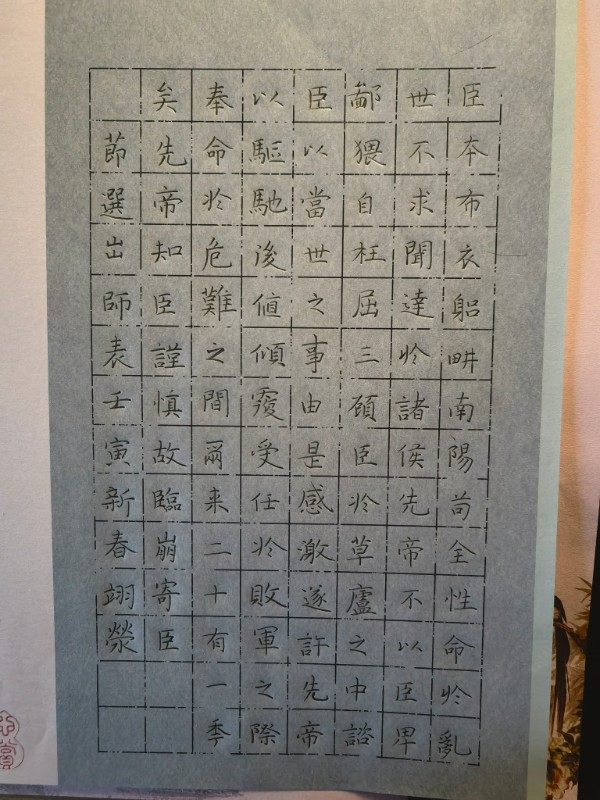 臣本布衣躬畊南陽苟全性命於亂
世不求聞達於諸侯先帝不以臣卑
鄙猥自枉屈三顧臣於草廬之中諮
臣以當世之事由是感激遂許先帝
以驅馳後值傾覆受任於敗軍之際
奉命於危難之間爾来二十有一季
矣先帝知臣謹慎故臨崩寄臣
節選出師表壬寅新春翊熒